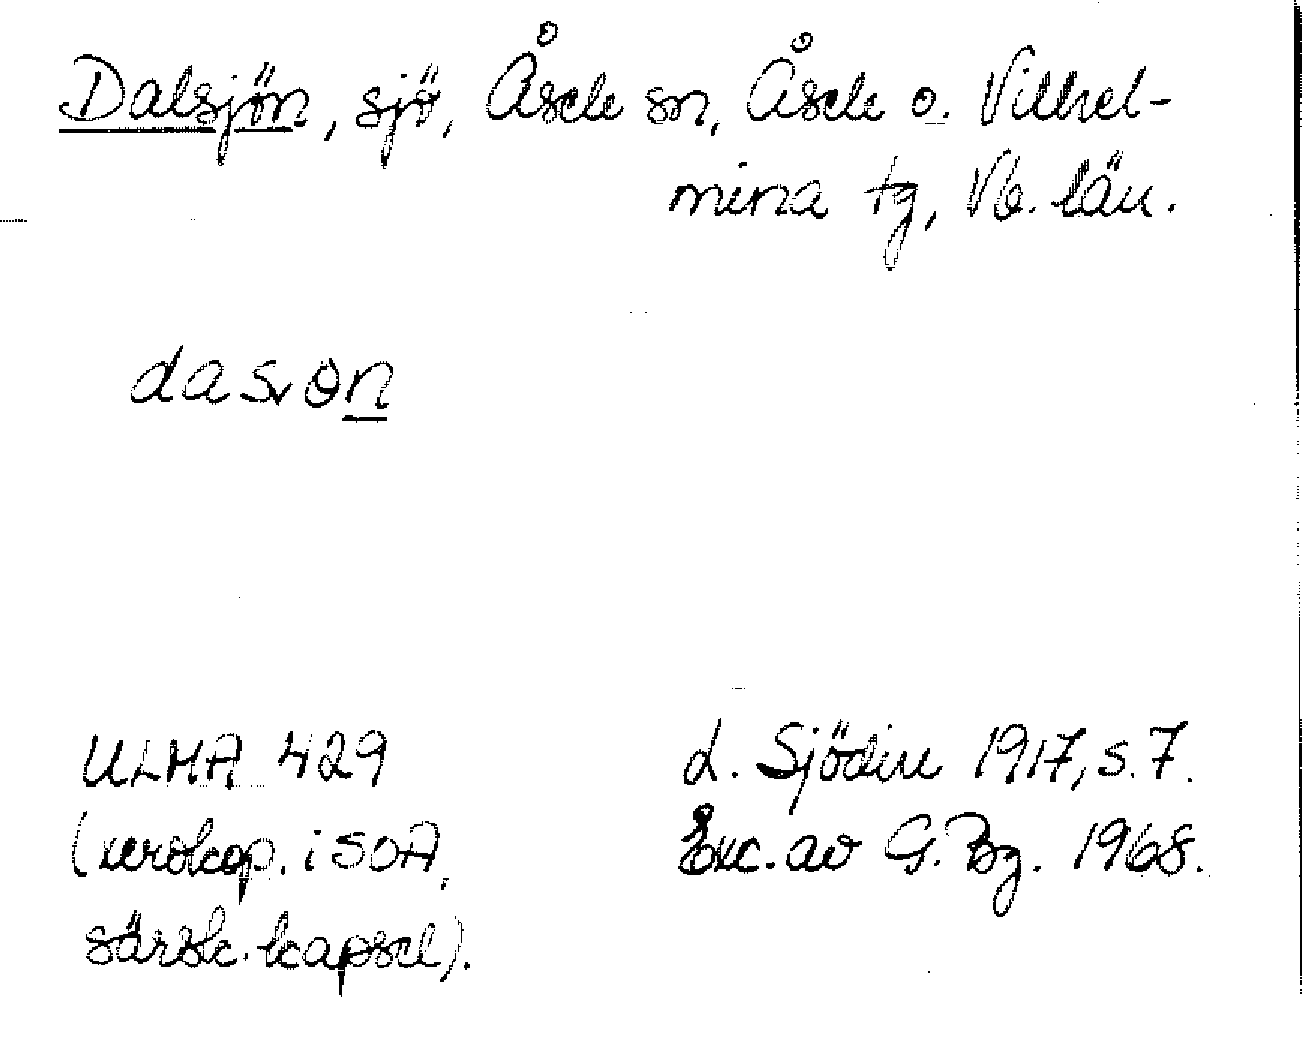 Dalsjön, sjö, Åsele sn, Åsele o. Vilhel-
mina tg, Vb. län.
dasvɵn
ULMA 429
(xerokop. i SOA,
särsk. kapsel).
L. Sjödin 1917, s. 7.
Exc. av G. Bg. 1968.